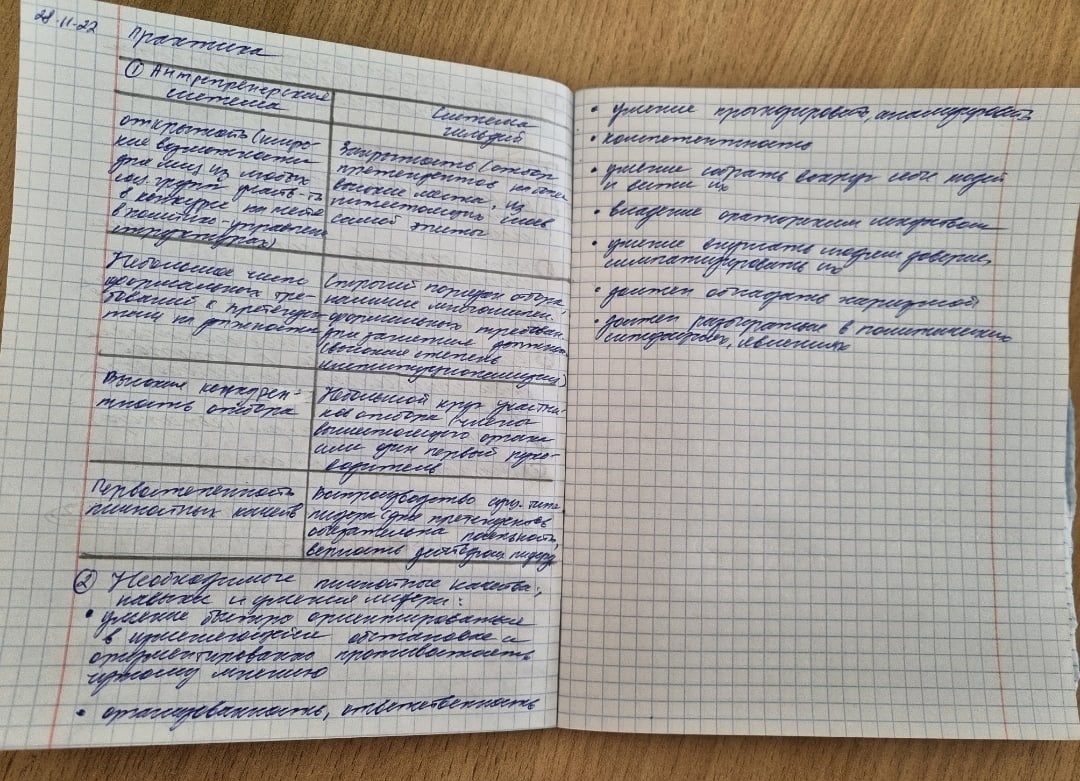 28.11.22
Практика
① Антрепренерская
система
Система
гильдий
открытость (широ-
кие возможности
для лиц из любых
соц. групп участв-ть
в конкурсе на место
в политико-управлен
структурах)
Закрытость (отбор
претендентов на более
высокие места, из
нижестоящих слоев
самой элиты
Небольшое число
формальных тре-
бований к претенден
там на должности
Строгий порядок отбора,
наличие многочислен.
формальных требован.
для занятия должност
(высокая степень
институционализации)
Высокая конкурен-
тность отбора
Небольшой круг участни-
ков отбора (члены
вышестоящего органа
или один первый руко-
водитель
Первостепенность
личностных качеств
Воспроизводство сущ. типа
лидера (для претендентов
обязательна лояльность,
верность лидеру
② Необходимые личностные качества,
навыки и умения лидера:
• умение быстро ориентироваться
в изменяющейся обстановке и
аргументированно противостоять
чужому мнению
• организованность, ответственность
• умение прогнозировать, анализировать
• компетентность
• умение собрать вокруг себя людей
и вести их
• владение ораторским искусством
• умение внушать людям доверие,
симпатизировать их
• должен обладать харизмой
• должен разбираться в политических
ситуациях, явлениях